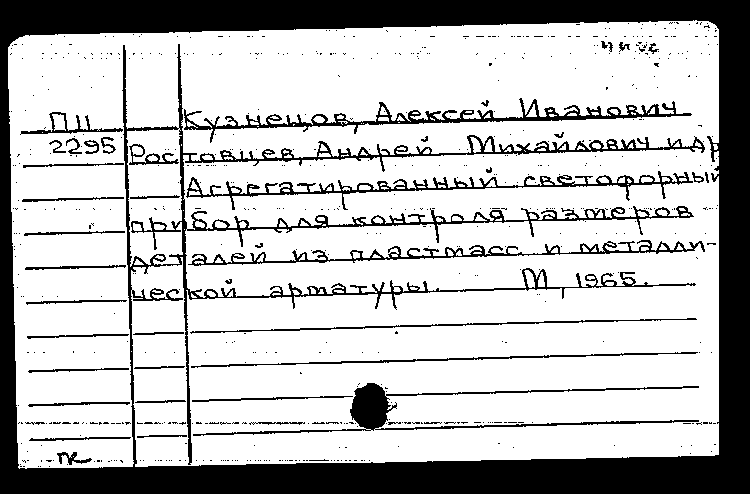 П11 Кузнецов, Алексей Иванович
2295 Ростовцев, Андрей Михайлович и др
Агрегатированный светофорный
прибор для контроля размеров
деталей из пластмасс и металли-
ческой арматуры. М, 1965.